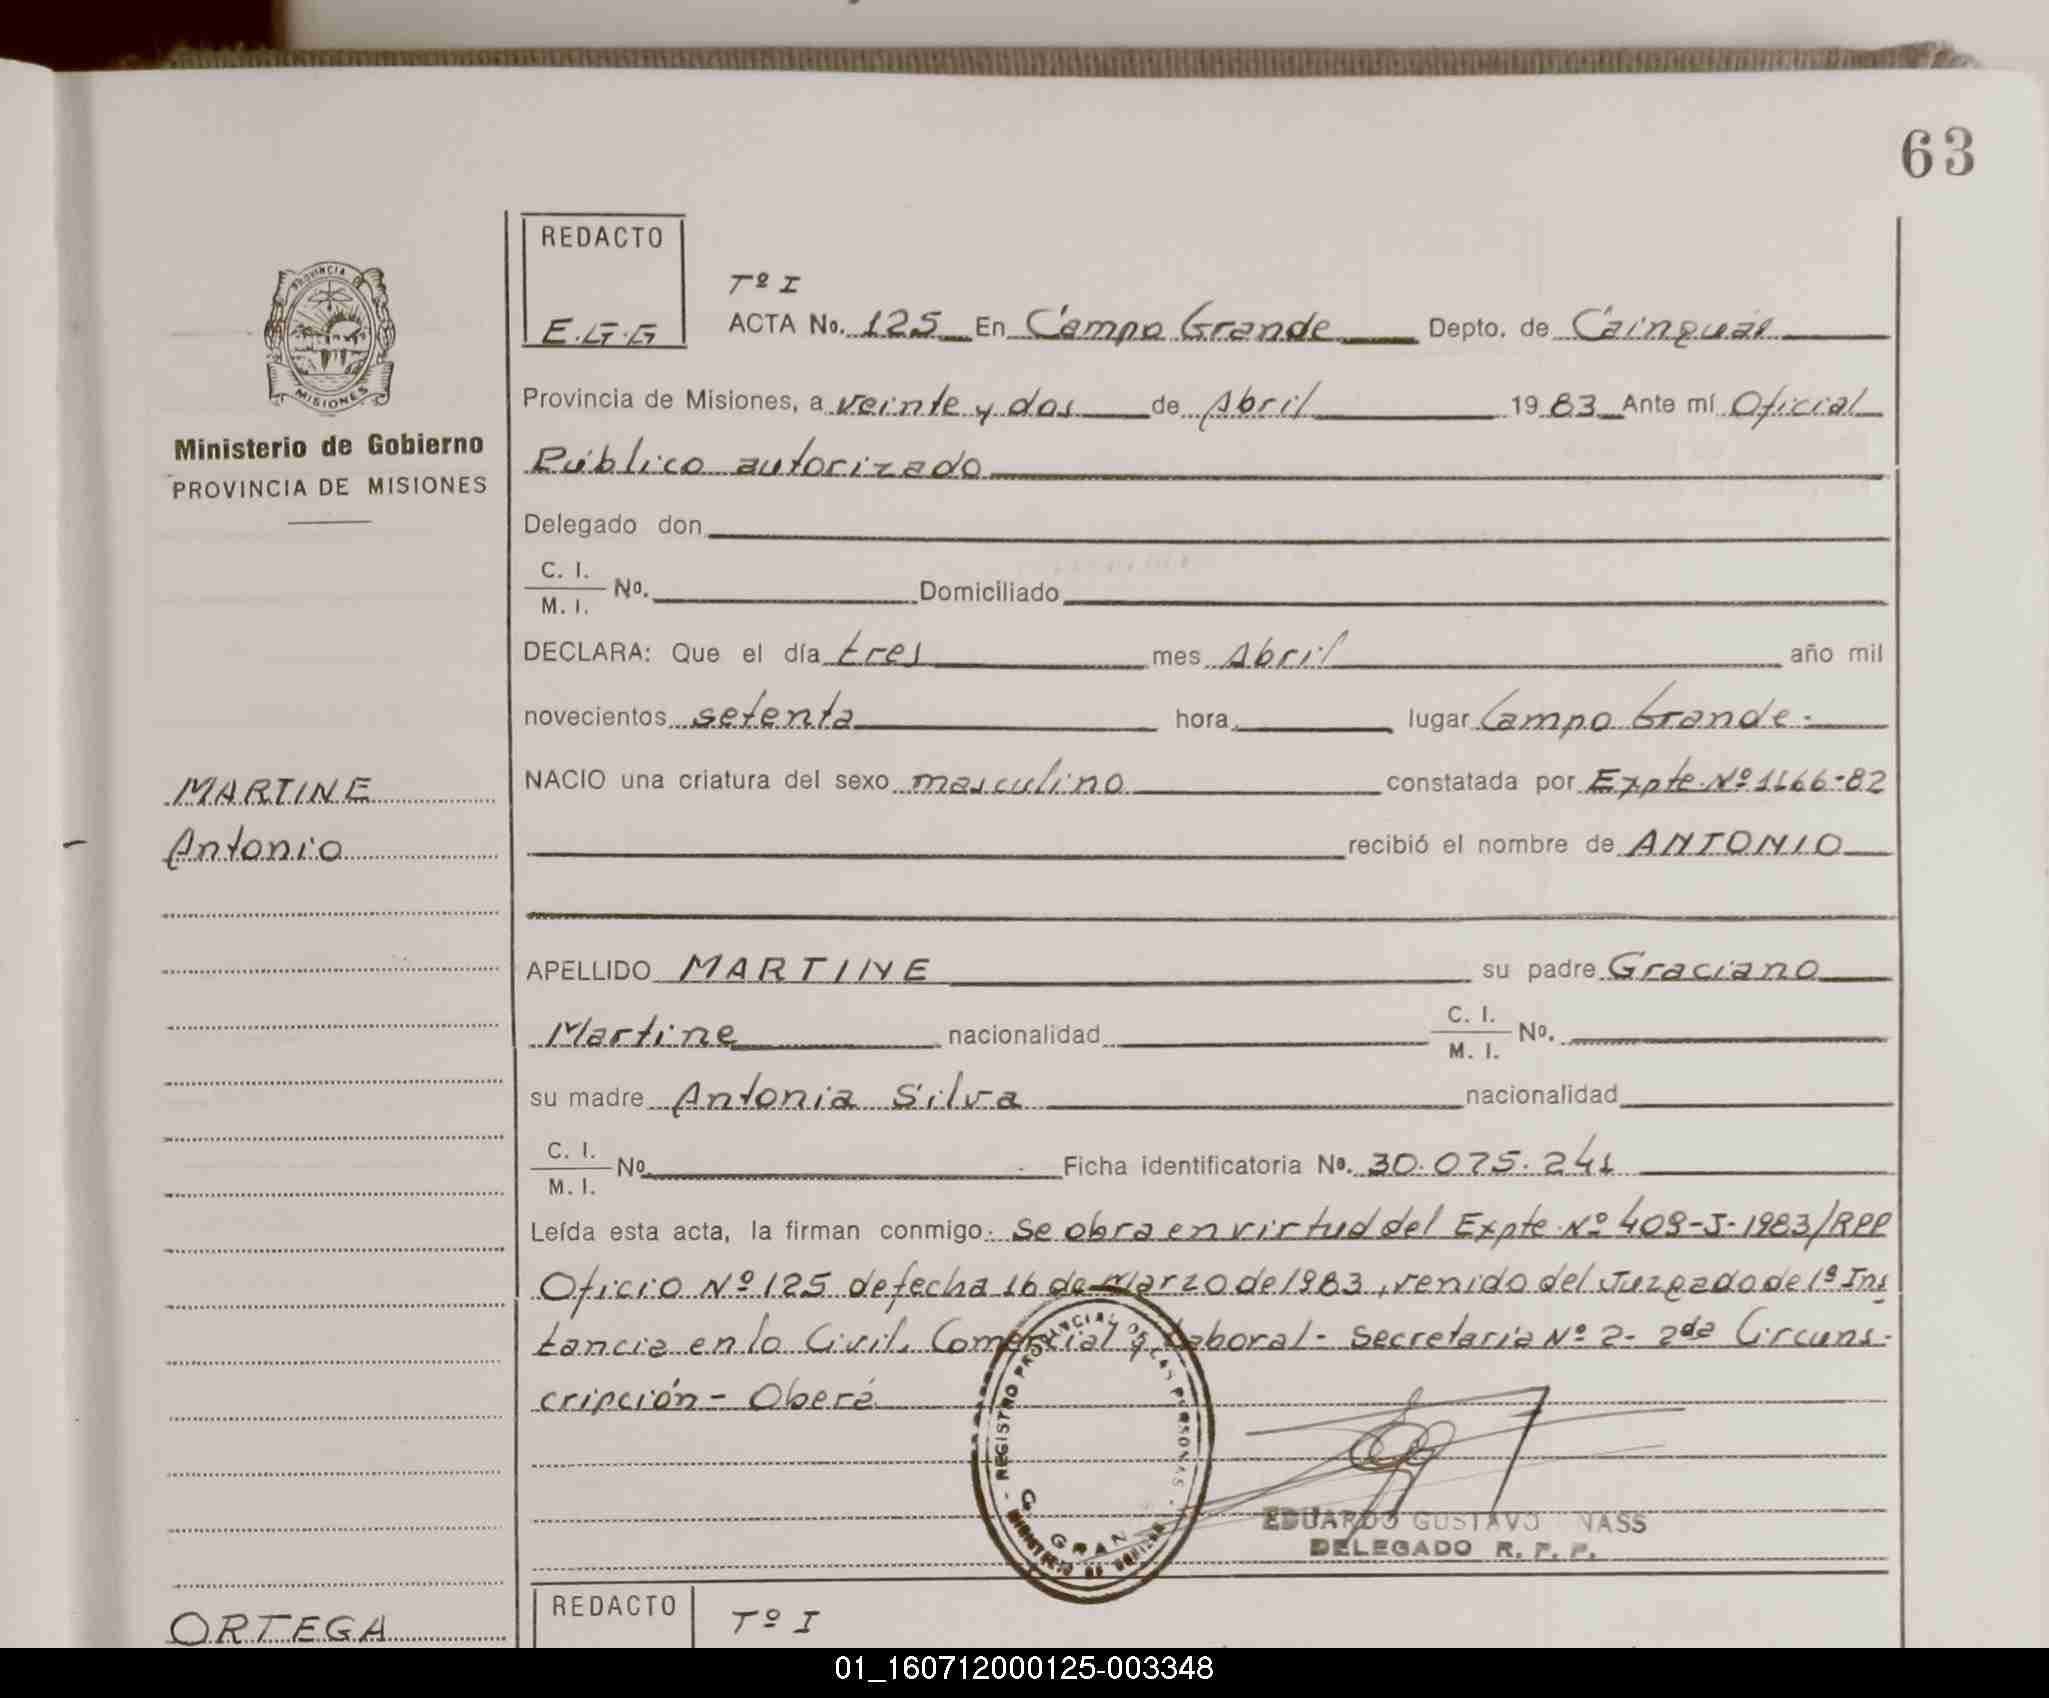 63
REDACTO
E.G.G
Tº I
ACTA No. 125 En Campo Grande Depto. de Cainguás
Provincia de Misiones, a veinte y dos de Abril 1983 Ante mí Oficial
Público autorizado
Delegado don
C. I.
M. I. No. Domiciliado
DECLARA: Que el día tres mes Abril año mil
novecientos setenta hora lugar Campo Grande.
NACIO una criatura del sexo masculino constatada por Expte. Nº 1166-82
recibió el nombre de ANTONIO
APELLIDO MARTINE su padre Graciano
Martine nacionalidad C. I.
M. I. No.
su madre Antonia Silva nacionalidad
C. I.
M. I. No. Ficha identificatoria No. 30.075.241
Leída esta acta, la firman conmigo: Se obra en virtud del Expte. Nº 409-J-1983/RPP
Oficio Nº 125 de fecha 16 de Marzo de 1983, venido del Juzgado de 1ª Ins
tancia en lo Civil, Comercial y Laboral - Secretaría Nº 2 - 2da Circuns-
cripción - Oberá
REGISTRO PROVINCIAL DE LAS PERSONAS
C. GRAN
EDUARDO GUSTAVO NASS
DELEGADO R. P. P.
PROVINCIA DE
MISIONES
Ministerio de Gobierno
PROVINCIA DE MISIONES
MARTINE
Antonio
ORTEGA
REDACTO
Tº I
01_160712000125-003348